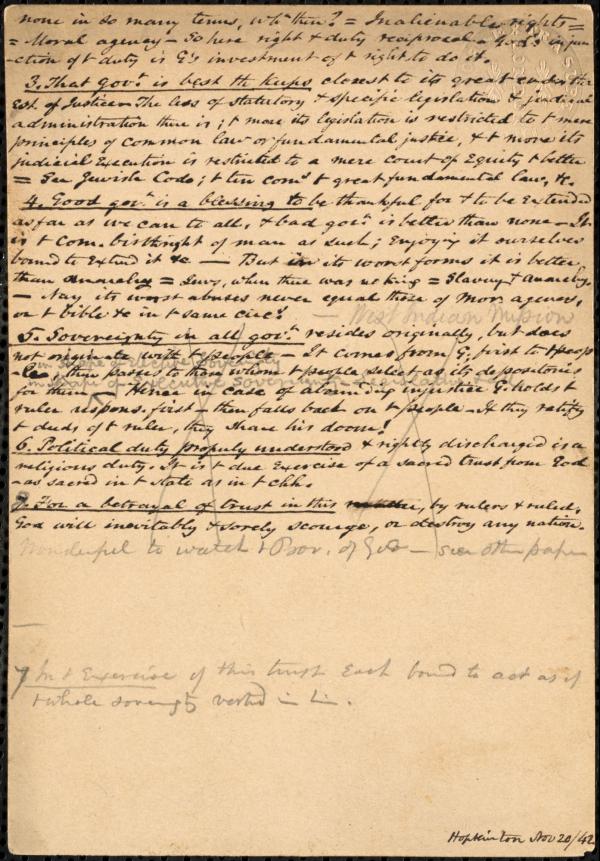 none in so many terms, wht then? = Inalienable rights =
= Moral agency - So here right & duty reciprocal - G's injun-
-ction of t duty is G's investment of t right to do it.
3. That govt. is best th keeps closest to its great end
Est. of Justice - The less of statutory & specific legislation & judicial
administration there is; t more its legislation is restricted to t mere
principles of common law or fundamental justice, & t more its
judicial Execution is restricted to a mere court of Equity t better
= See Jewish Code; t ten coms. t great fundamental law, &c.
4. Good govt. is a blessing to be thankful for & to be Extended
as far as we can to all, & bad govt. is better than none - It
is t com. birthright of man as such; Enjoying it ourselves
bound to Extend it &c - But in its worst forms it is better
than anarchy = Jews, when there was no king = Slavery & anarchy,
- Nay, its worst abuses never equal those of mor. agency,
or t bible &c in t same circ!
- West Indian Mission
5. Sovereignty in all govt. resides originally, but does
not originate with t people - It comes from G, first to t peop-
-le; then passes to them whom t people select as its depositories
in shape of Executive Sovereignty
for them - Hence in case of abounding injustice G. holds t
ruler respons. first - then falls back on t people - If they ratify
t deeds of t ruler, they share his doom!
6. Political duty properly understood & rightly discharged is a
religious duty. It is t due Exercise of a sacred trust from God
- as sacred in t state as in t chh.
7. For a betrayal of trust in this matter, by rulers & ruled,
God will inevitably & sorely scourge, or destroy any nation.
Wonderful to watch t Prov. of God - see other paper
7 In t Exercise of this trust Each bound to act as if
t whole soveregty vested in him.
Hopkinton Nov 20/42